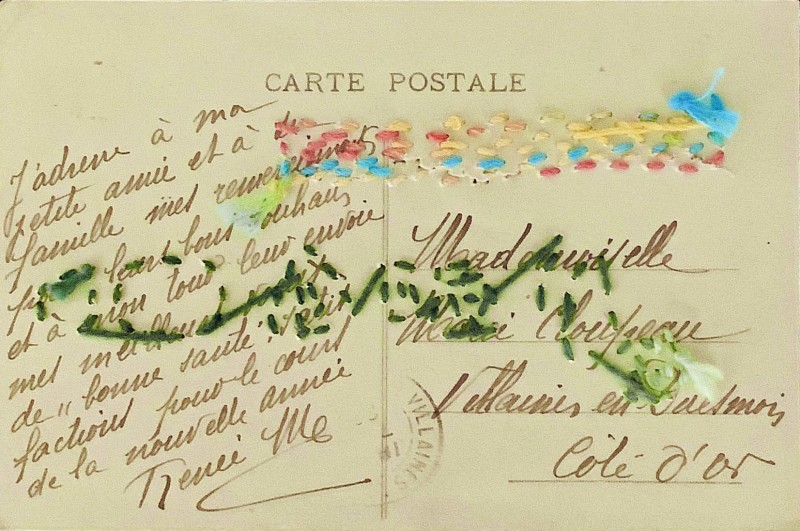 CARTE POSTALE
J'adresse à ma
petite amie et à sa
famille mes remerciements
pour leurs bons souhaits
et à mon tour leur envoie
mes meilleurs
de "bonne santé" satis
factions pour le cours
de la nouvelle année
Renée
Mademoiselle
Marie Cloupeau
Villaines en Duesmois
Côte d'Or
VILLAINES